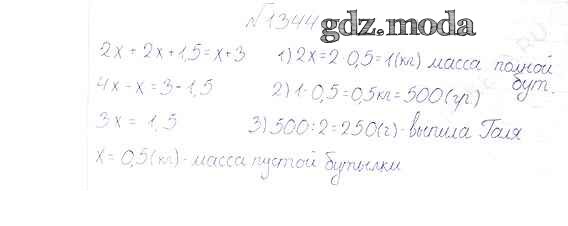 №1344
gdz.moda
2x + 2x + 1,5 = x + 3
4x - x = 3 - 1,5
3x = 1,5
x = 0,5 (кг) - масса пустой бутылки
1) 2x = 2 · 0,5 = 1 (кг) масса полной бут.
2) 1 - 0,5 = 0,5 кг = 500 (гр)
3) 500 : 2 = 250 (г) - выпила Галя